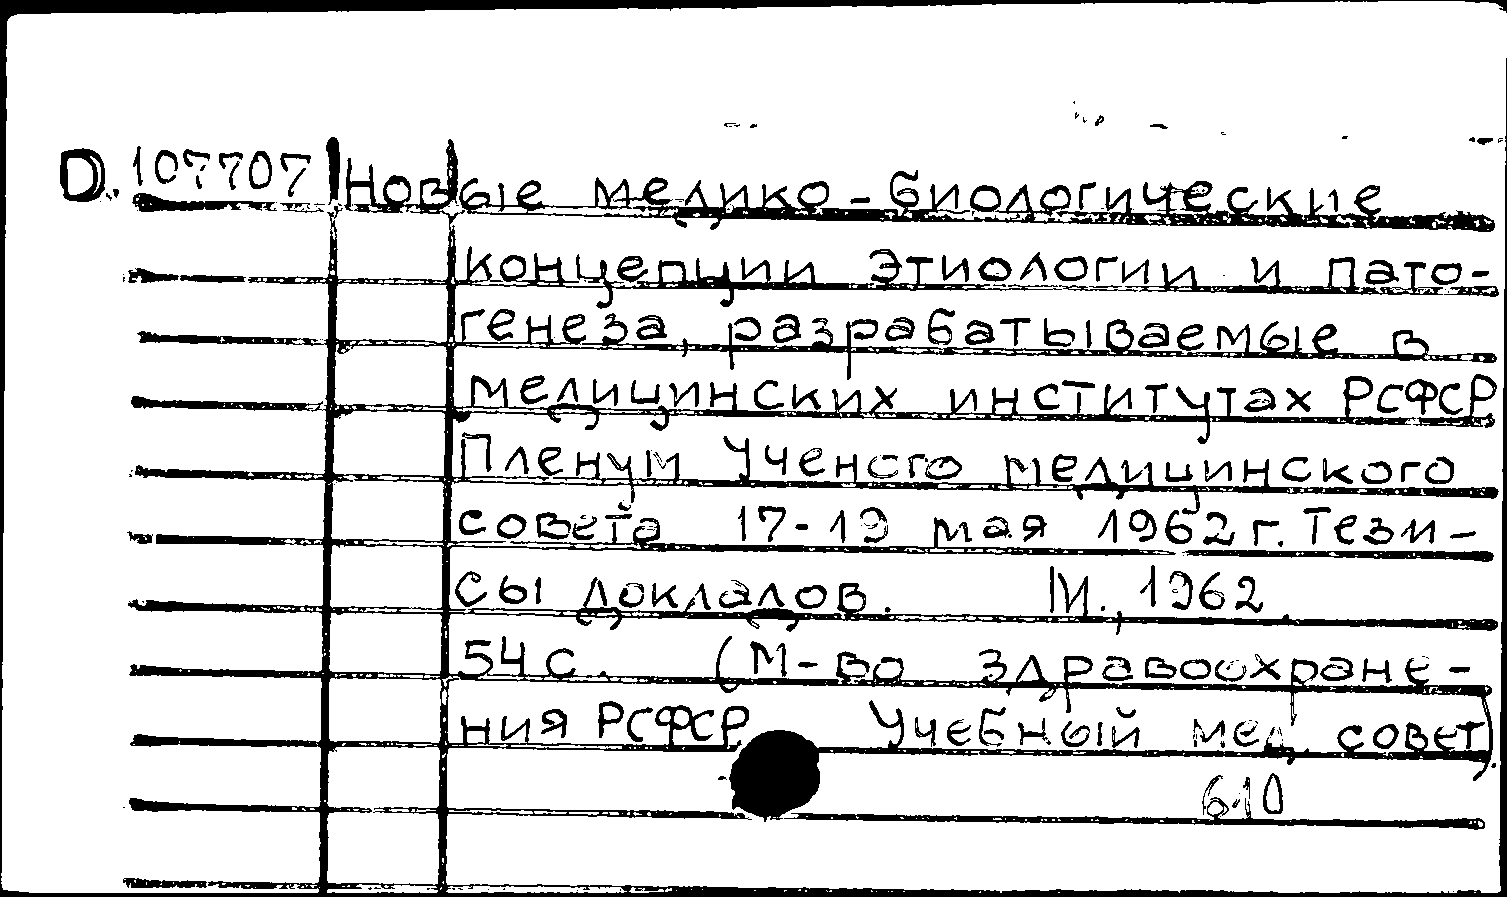 D. 107707 Новые медико-биологические
концепции этиологии и пато-
генеза, разрабатываемые в
медицинских институтах РСФСР
Пленум Ученого медицинского
совета 17-19 мая 1962 г. Тези-
сы докладов. М., 1962.
54 с. (М-во здравоохране-
ния РСФСР Учебный мед. совет).
610